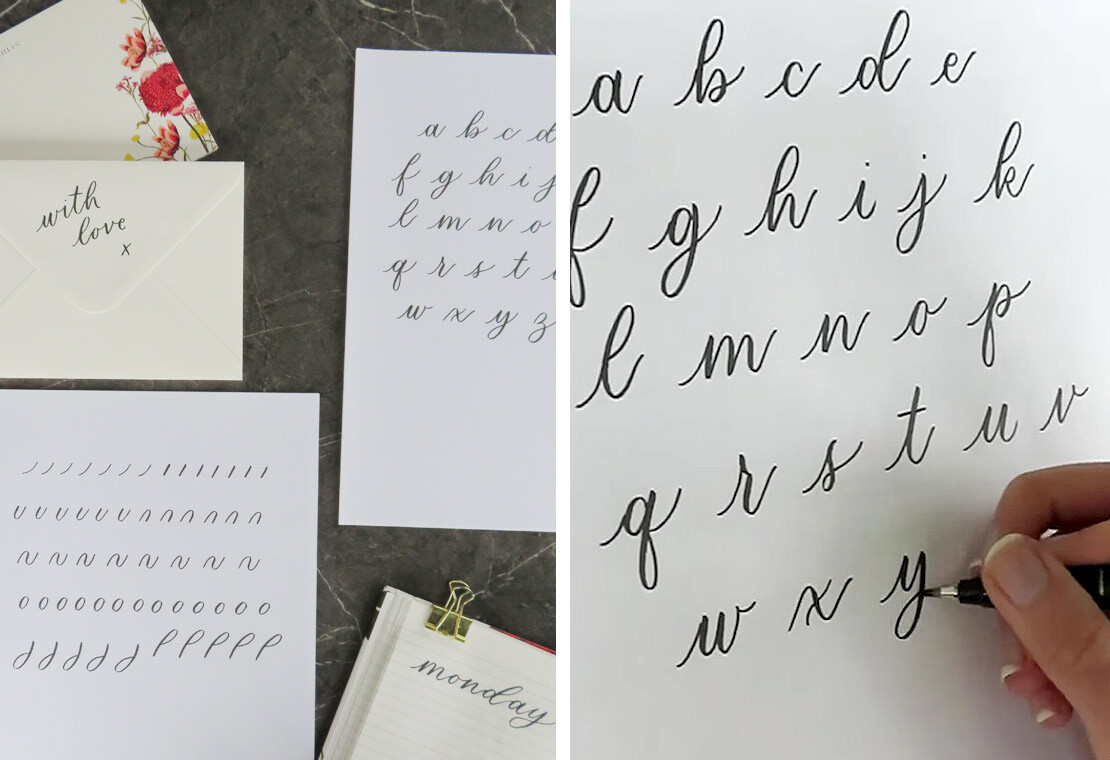 with
love
x
a b c d
f g h i j
l m n o
q r s t
w x y z
monday
a b c d e
f g h i j k
l m n o p
q r s t u v
w x y